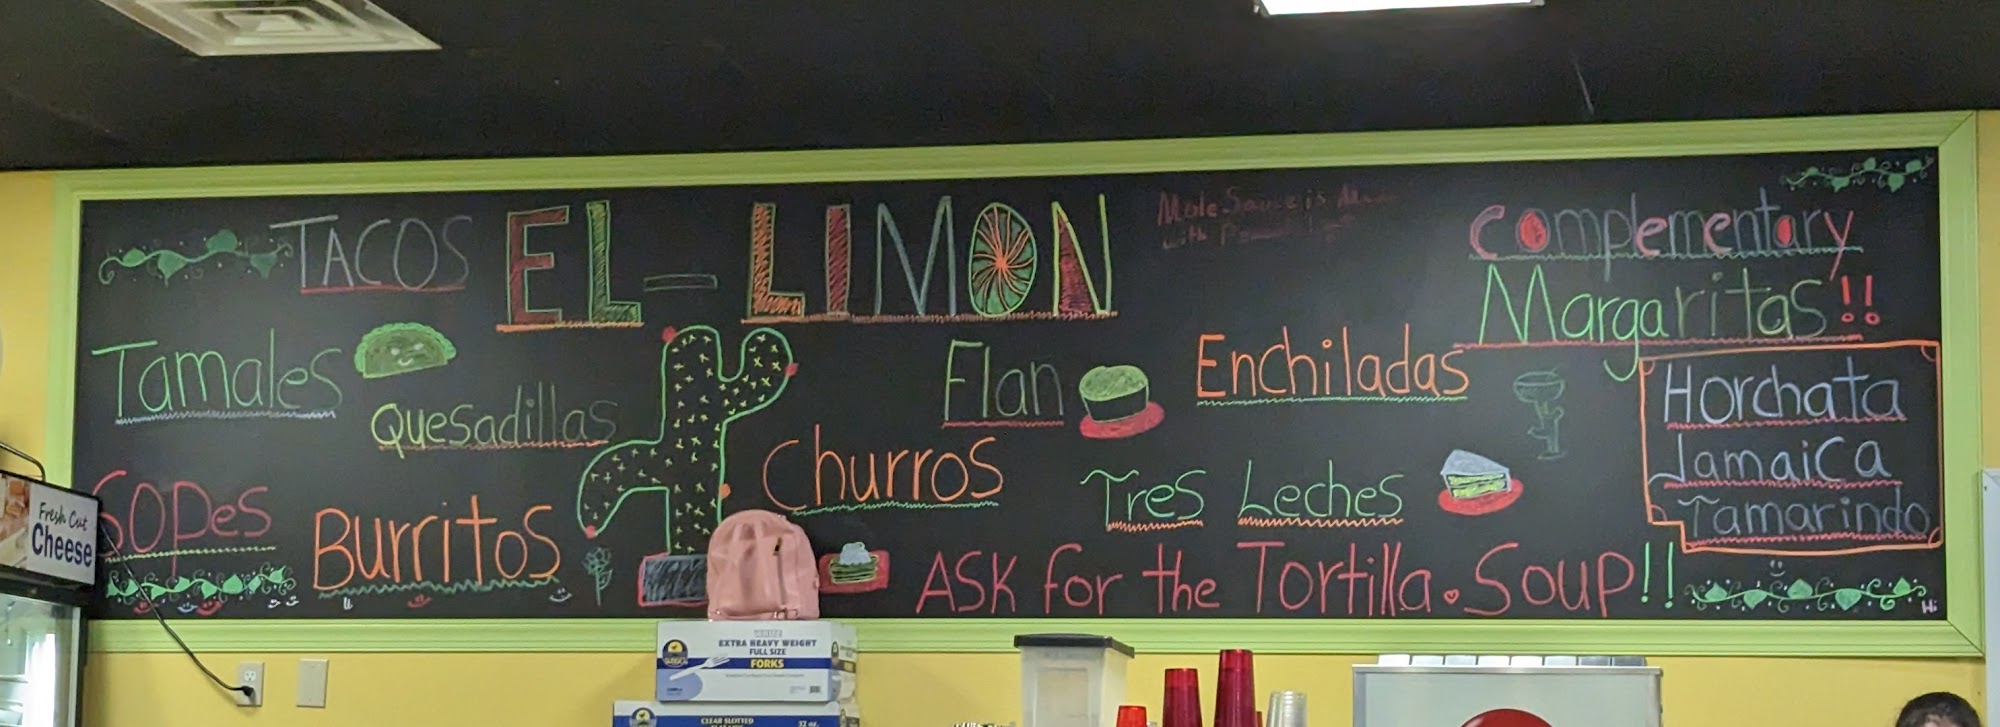 TACOS EL-LIMON
Mole Sauce is
with
Complementary
Margaritas!!
Tamales
Quesadillas
Flan
Enchiladas
Horchata
Jamaica
Tamarindo
Churros
Tres Leches
Sopes
Burritos
ASK for the Tortilla Soup!!
Hi
Fresh Cut
Cheese
WHITE
EXTRA HEAVY WEIGHT
FULL SIZE
FORKS
CLEAR SLOTTED
32 oz.